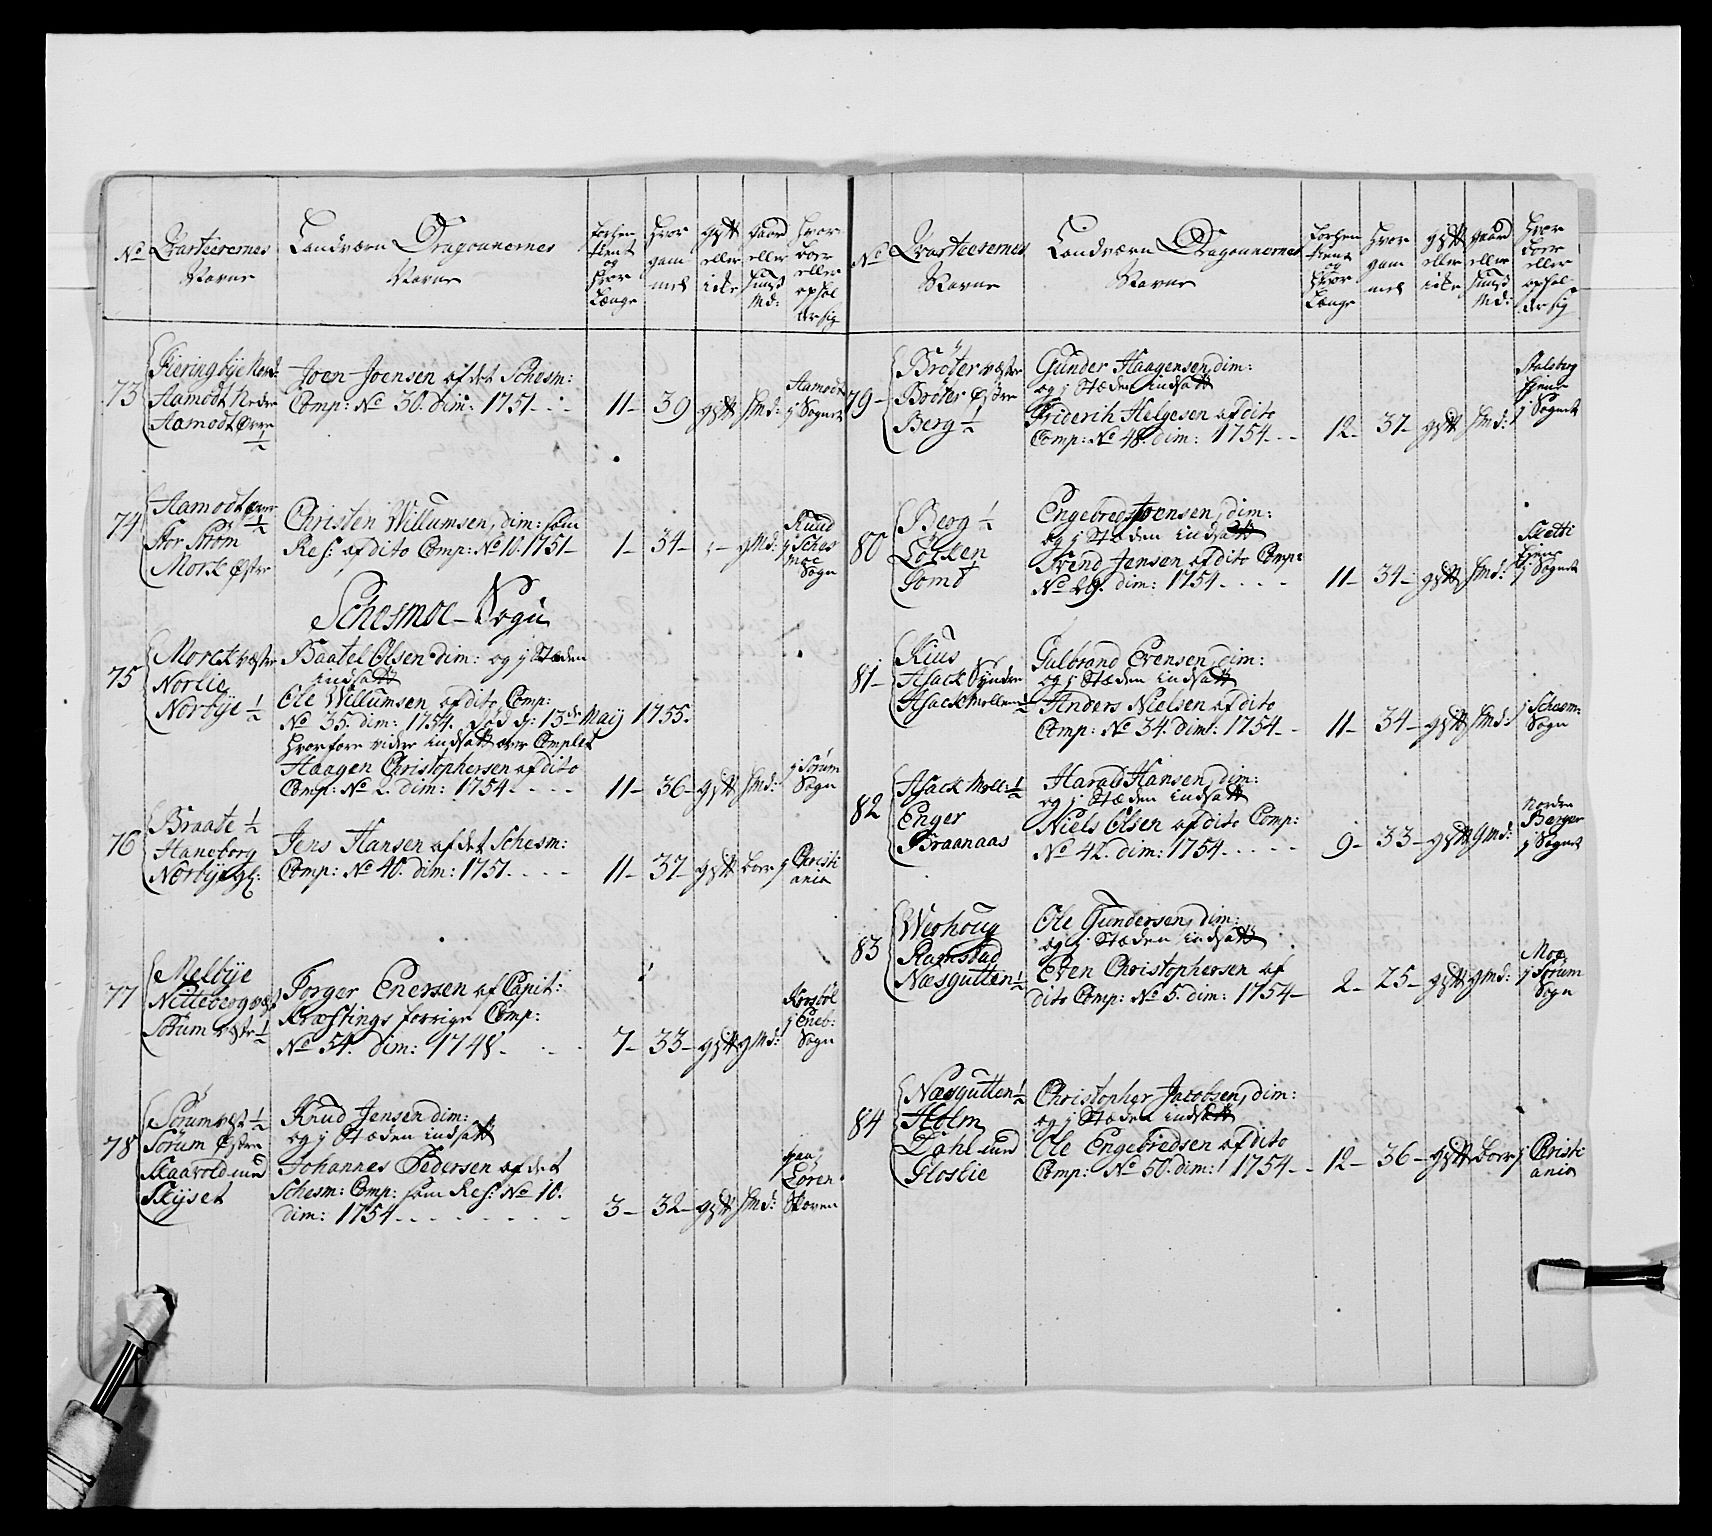 No Qvarteerernes Navne
Landværn Dragounernes Navne
forhen tient og hvor Længe
hvor gam mel
gift eller icke
gaard eller huusd Md:
hvor boer eller ophol der sig
73
Aamodt Nedre
Aamodt Øvre ½
Joen Joensen af det Schesm:
Comp: No 30. dim: 1751 - -
11 - 39 gift hmd: Aamodt i Sognet
74
Aamodt Øvre ½
Stor Strøm
Morck Østre
Christen Willumsen, dim: som
Res: af dito Comp: No 10. 1751 -
1 - 34 - : - gmd: Knud i Schesmoe Sogn
Schesmoe - Sogn
75
Morck væstre
Norlie
Norbye ½
Baatel Olsen dim: og i Stæden
indsatt
Ole Willumsen af dito Comp:
No 35. dim: 1754. død d: 13de Maij 1755.
hvorfore vider indsatt over Complet
Haagen Christophersen af dito
Comp: No 2. dim: 1754 - - -
11 - 36 - gift hmd: i Sørum Sogn
76
Braate ½
Haneborg
Norbye
Jens Hansen af det Schesm:
Comp: No 40. dim: 1751 - - -
11 - 37 - gift boer i Christiania
77
Melbye
Nitteberg væst
Sørum væstre ½
Torger Enersen af Capit:
Kræftings forrige Comp:
No 54. dim: 1748 - - -
7 - 33 - gift gmd: i Eneb: Sogn
78
Sørum væst ½
Sørum Østre
Skaarold
Skjset
Knud Jensen dim:
og i Stæden indsatt
Johannes Pedersen af det
Schesm: Comp: som Res: No 10.
dim: 1754 - - - - -
3 - 32 - gift hmd: paa Løren Skoven
No Qvarteerernes Navne
Landværn Dragounernes Navne
forhen tient og hvor Længe
hvor gam mel
gift eller icke
gaard eller huusd Md:
hvor boer eller ophol der sig
79 -
Brøter væstre
Brøter Østre
Berg ½
Gunder Haagensen, dim:
og i Stæden indsatt
Friderih Helgesen af dito
Comp: No 48. dim: 1754 - - -
12 - 37 - gift hmd: i Sognet
80
Berg ½
Løcken
Tomt
Engebret Joensen, dim:
og i Stæden indsatt
Svend Jensen af dito Comp:
No 29. dim: 1754 - - - -
11 - 34 - gift hmd: i Sognet
81 -
Riis
Asack Syndre
Asack Mellem ½
Gulbrand Evensen, dim:
og i Stæden indsatt
Anders Nielsen af dito
Comp: No 34. dim: 1754 - -
11 - 34 - gift hmd: i Schesm: Sogn
82
Asack Mell: ½
Enger
Braanaas
Harald Hansen, dim:
og i Stæden indsatt
Niels Olsen af dito Comp:
No 42. dim: 1754 - - - -
9 - 33 - gift gmd: Nordre Berger i Sognet
83
Werhoug
Ramstad
Næsgutten ½
Ole Gundersen, dim:
og i Stæden indsatt
Even Christophersen af
dito Comp: No 5. dim: 1754 -
2 - 25 - gift gmd: Moe i Sørum Sogn
84
Næsgutten ½
Holm
Dahl
Gloslie
Christopher Jacobsen, dim:
og i Stæden indsatt
Ole Engebredsen af dito
Comp: No 50. dim: 1754 - -
12 - 36 - gift boer i Christiania